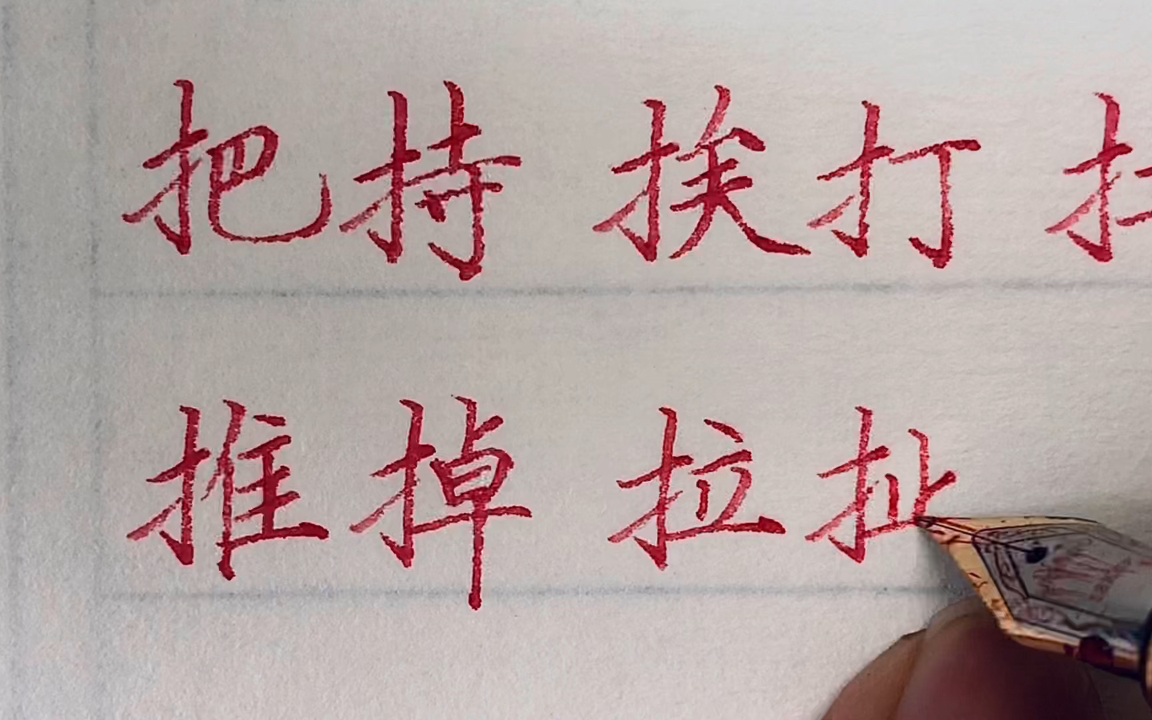 把持 挨打
推掉 拉扯